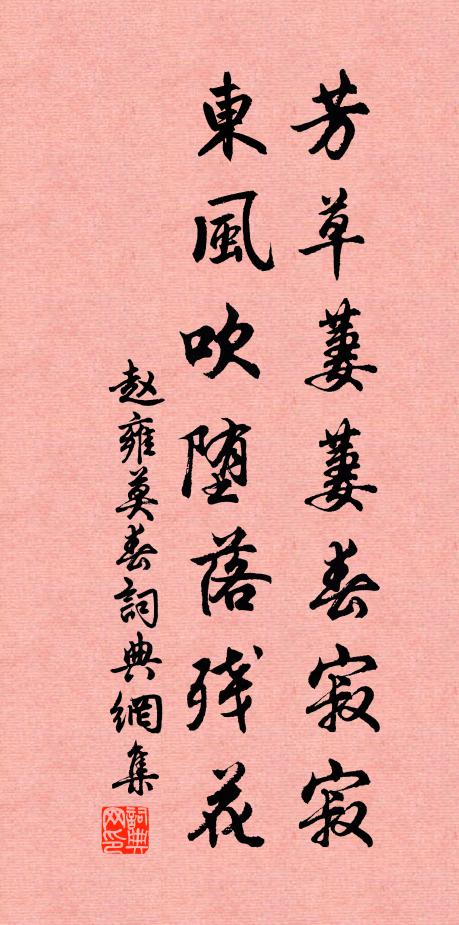 芳草萋萋春寂寂
東風吹堕落残花
赵雍莫春詞典網集
詞典网印